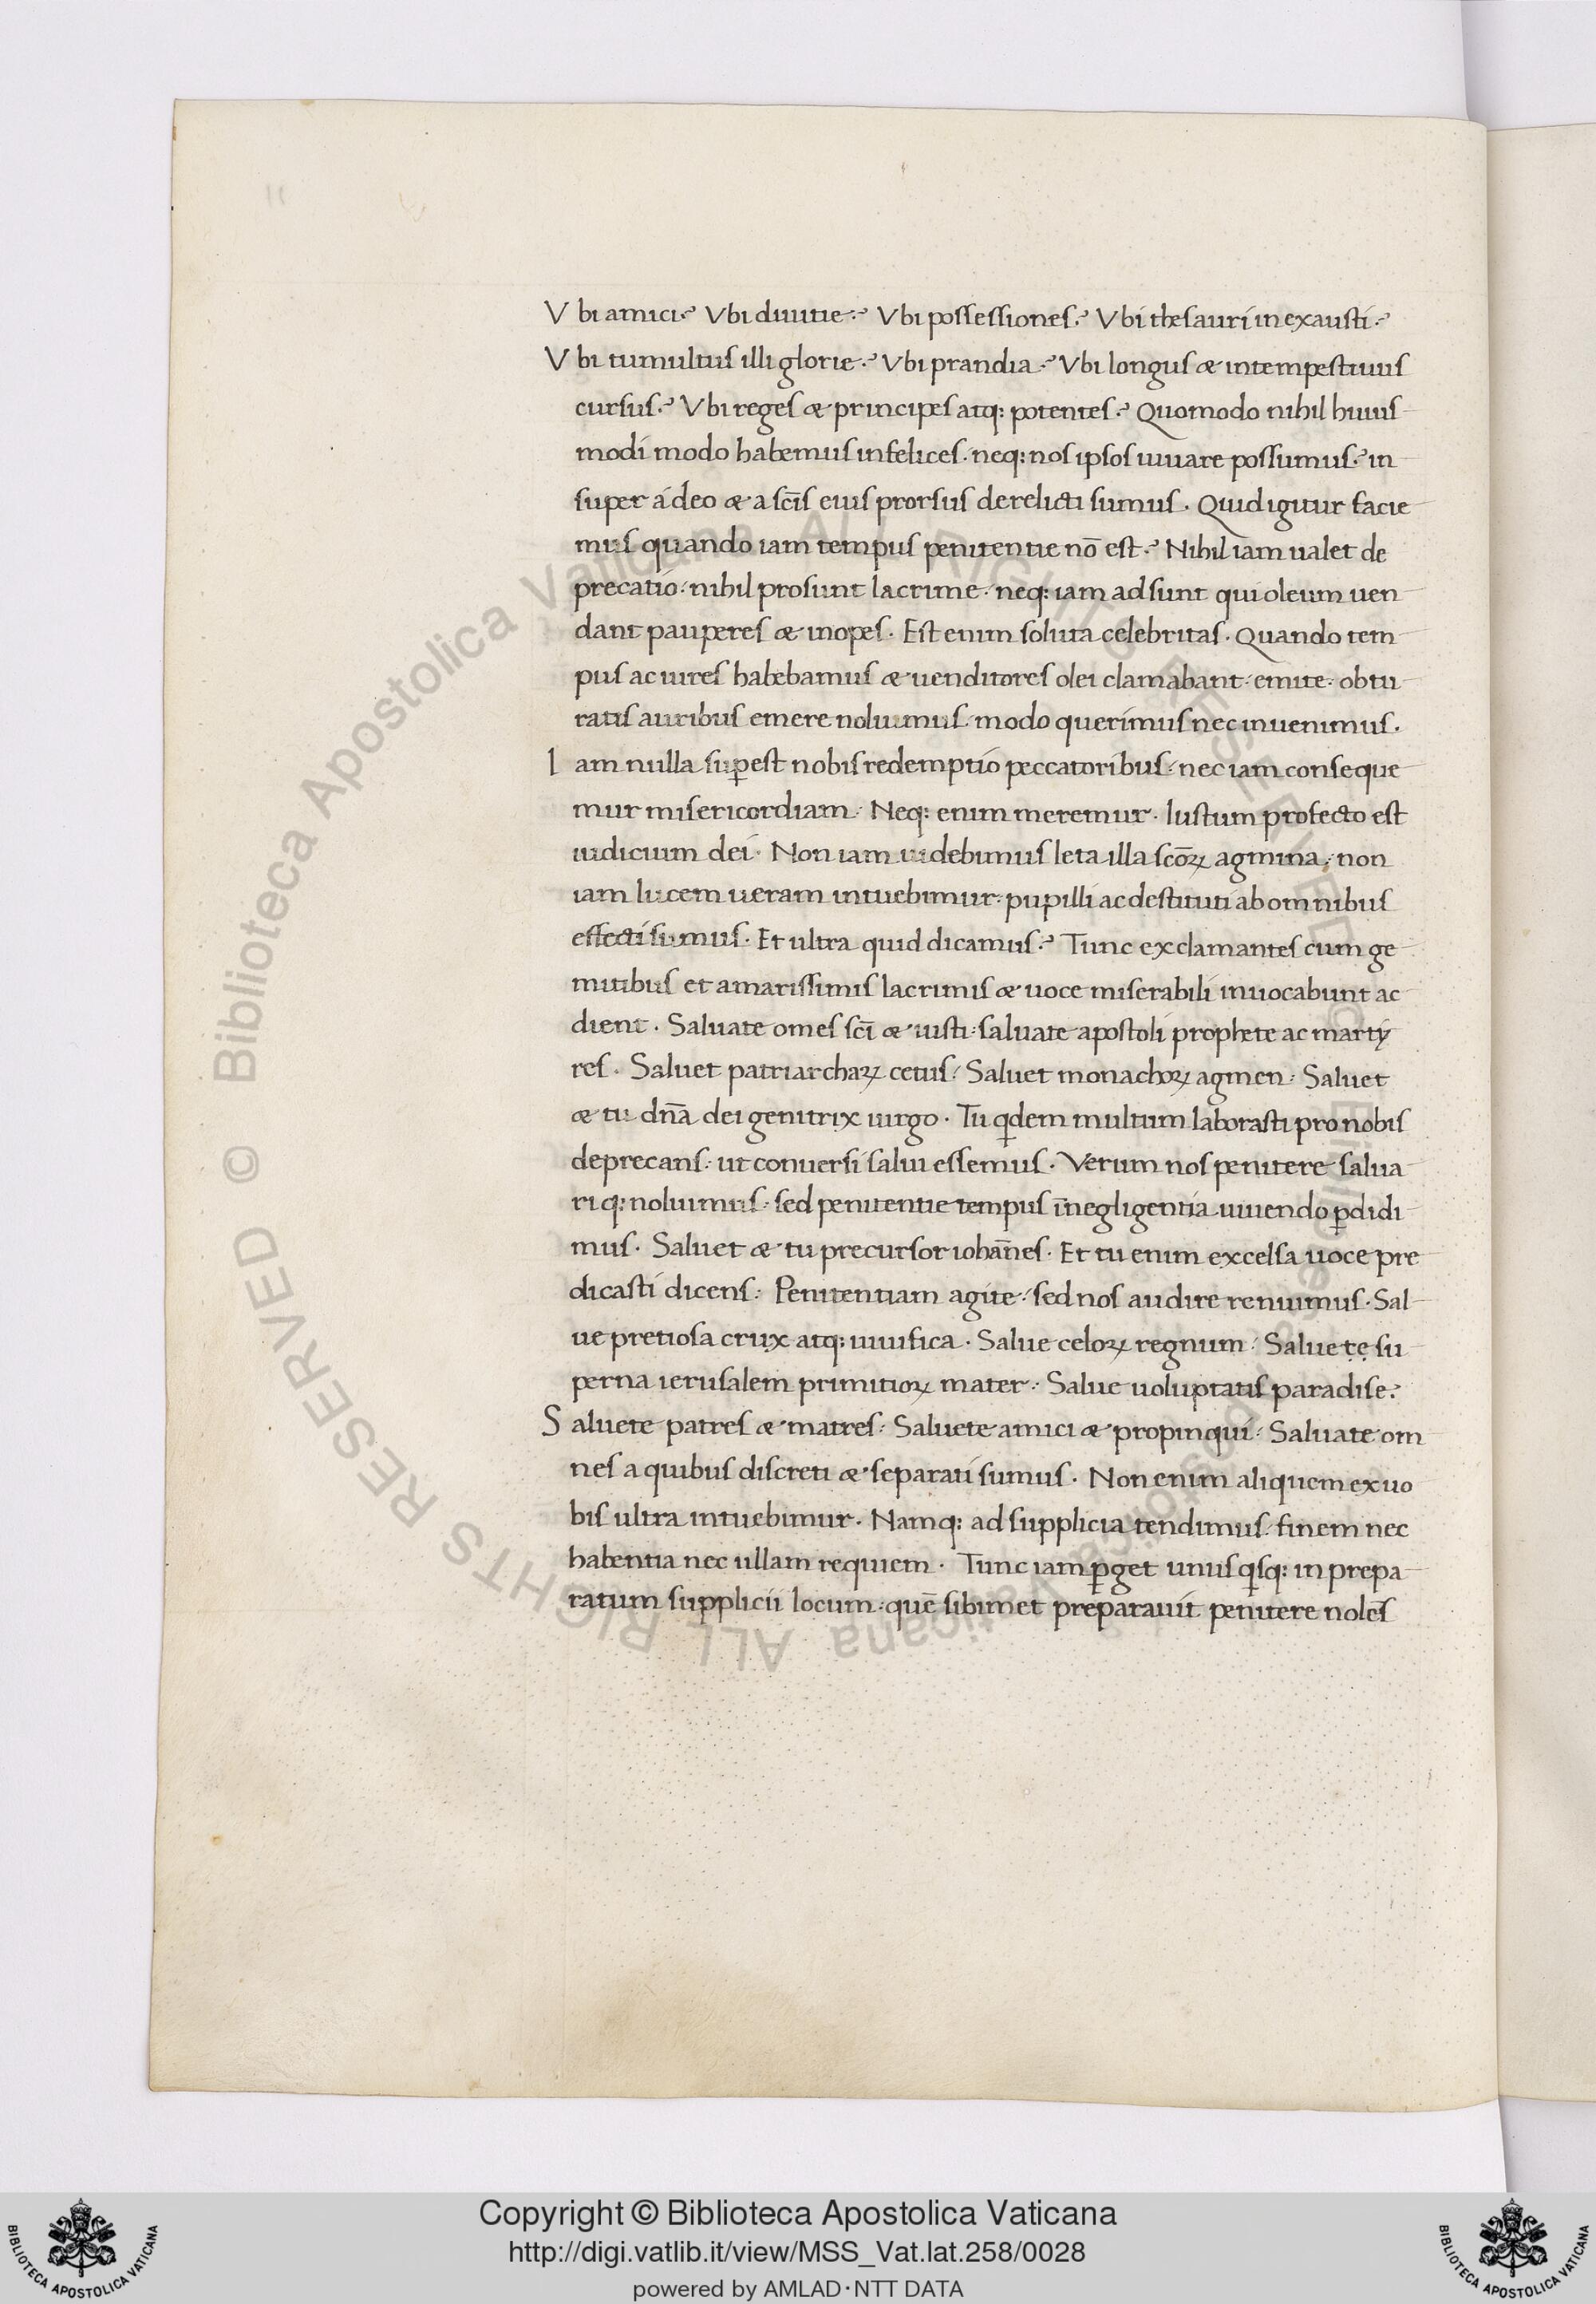 Vbi amici? Vbi diuitie? Vbi possessiones? Vbi thesauri inexausti?
Vbi tumultus illi glorie? Vbi prandia? Vbi longus & intempestiuus
cursus? Vbi reges & principes atq: potentes? Quomodo nihil huius
modi modo habemus infelices. neq: nos ipsos iuuare possumus? in
super á deo & a scīs eius prorsus derelicti sumus. Quid igitur facie
mus quando iam tempus penitentie nō est? Nihil iam ualet de
precatio: nihil prosunt lacrime: neq: iam adsunt qui oleum uen
dant pauperes & inopes. Est enim soluta celebritas. Quando tem
pus ac uires habebamus & uenditores olei clamabant: emite: obtu
ratis auribus emere noluimus: modo querimus nec inuenimus.
Iam nulla suꝑest nobis redemptio peccatoribus: nec iam conseque
mur misericordiam. Neq: enim meremur. Iustum profecto est
iudicium dei. Non iam uidebimus leta illa scōꝝ agmina: non
iam lucem ueram intuebimur: pupilli ac destituti ab omnibus
effecti sumus. Et ultra quid dicamus? Tunc exclamantes cum ge
mitibus et amarissimis lacrimis & uoce miserabili inuocabunt ac
dient. Saluate omes scī & iusti: saluate apostoli prophete ac martẏ
res. Saluet patriarchaꝝ cetus: Saluet monachoꝝ agmen: Saluet
& tu dn̄a dei genitrix uirgo. Tu qͥdem multum laborasti pro nobis
deprecans: ut conuersi salui essemus. Verum nos penitere salua
riq: noluimus: sed penitentie tempus ī negligentia uiuendo ꝑdidi
mus. Saluet & tu precursor iohān̄es. Et tu enim excelsa uoce pre
dicasti dicens: Penitentiam agite: sed nos audire renuimus. Sal
ue pretiosa crux atq: uiuifica. Salue celoꝝ regnum: Saluetẹ su
perna ierusalem primitioꝝ mater: Salue uoluptatis paradise:
Saluete patres & matres: Saluete amici & propinqui: Saluate om
nes a quibus discreti & separati sumus. Non enim aliquem ex uo
bis ultra intuebimur. Namq: ad supplicia tendimus: finem nec
habentia nec ullam requiem. Tunc iam ꝑget unusqͥsq: in prepa
ratum supplicii locum: quē sibimet preparauit penitere nolēs
Copyright © Biblioteca Apostolica Vaticana
http://digi.vatlib.it/view/MSS_Vat.lat.258/0028
powered by AMLAD·NTT DATA
BIBLIOTECA APOSTOLICA VATICANA
BIBLIOTECA APOSTOLICA VATICANA
© Biblioteca Apostolica Vaticana ALL RIGHTS RESERVED
© Biblioteca Apostolica Vaticana ALL RIGHTS RESERVED